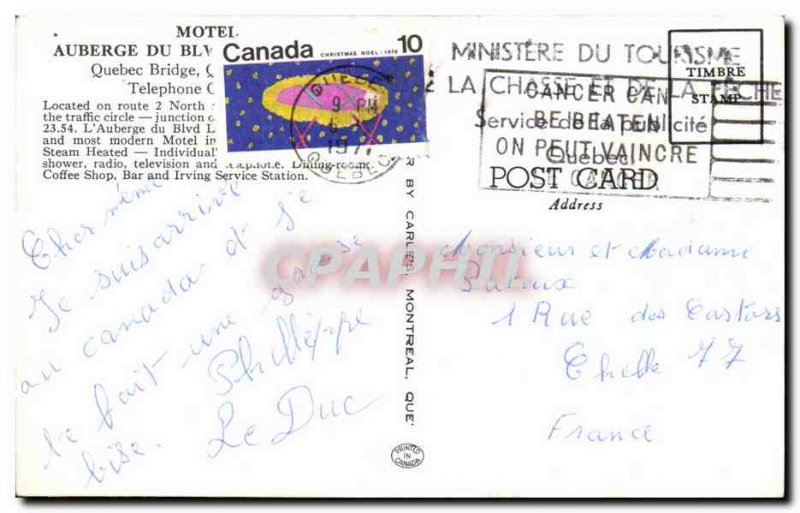 MOTEL
AUBERGE DU BLV
Quebec Bridge, Q
Telephone
Located on route 2 North
the traffic circle — junction
23.54. L'Auberge du Blvd L
and most modern Motel in
Steam Heated — Individual
shower, radio, television and telephone. Dining-room,
Coffee Shop, Bar and Irving Service Station.
Canada CHRISTMAS NOEL 1970 10
QUEBEC
9 PM
QUEBEC
MINISTÈRE DU TOURISME
LA CHASSE ET DE LA PÊCHE
Service de la publicité
Québec
CANCER CAN
BE BEATEN
ON PEUT VAINCRE
LE CANCER
TIMBRE
STAMP
POST CARD
Address
Cher mémé
Je suis arrivé
au canada et je
te fait une grosse
bise. Philleppe
Le Duc
BY CARLE'S, MONTREAL, QUE
PRINTED
IN
CANADA
Monsieur et Madame
1 Rue des Castors
Chelle 77
France
CPAPHIL